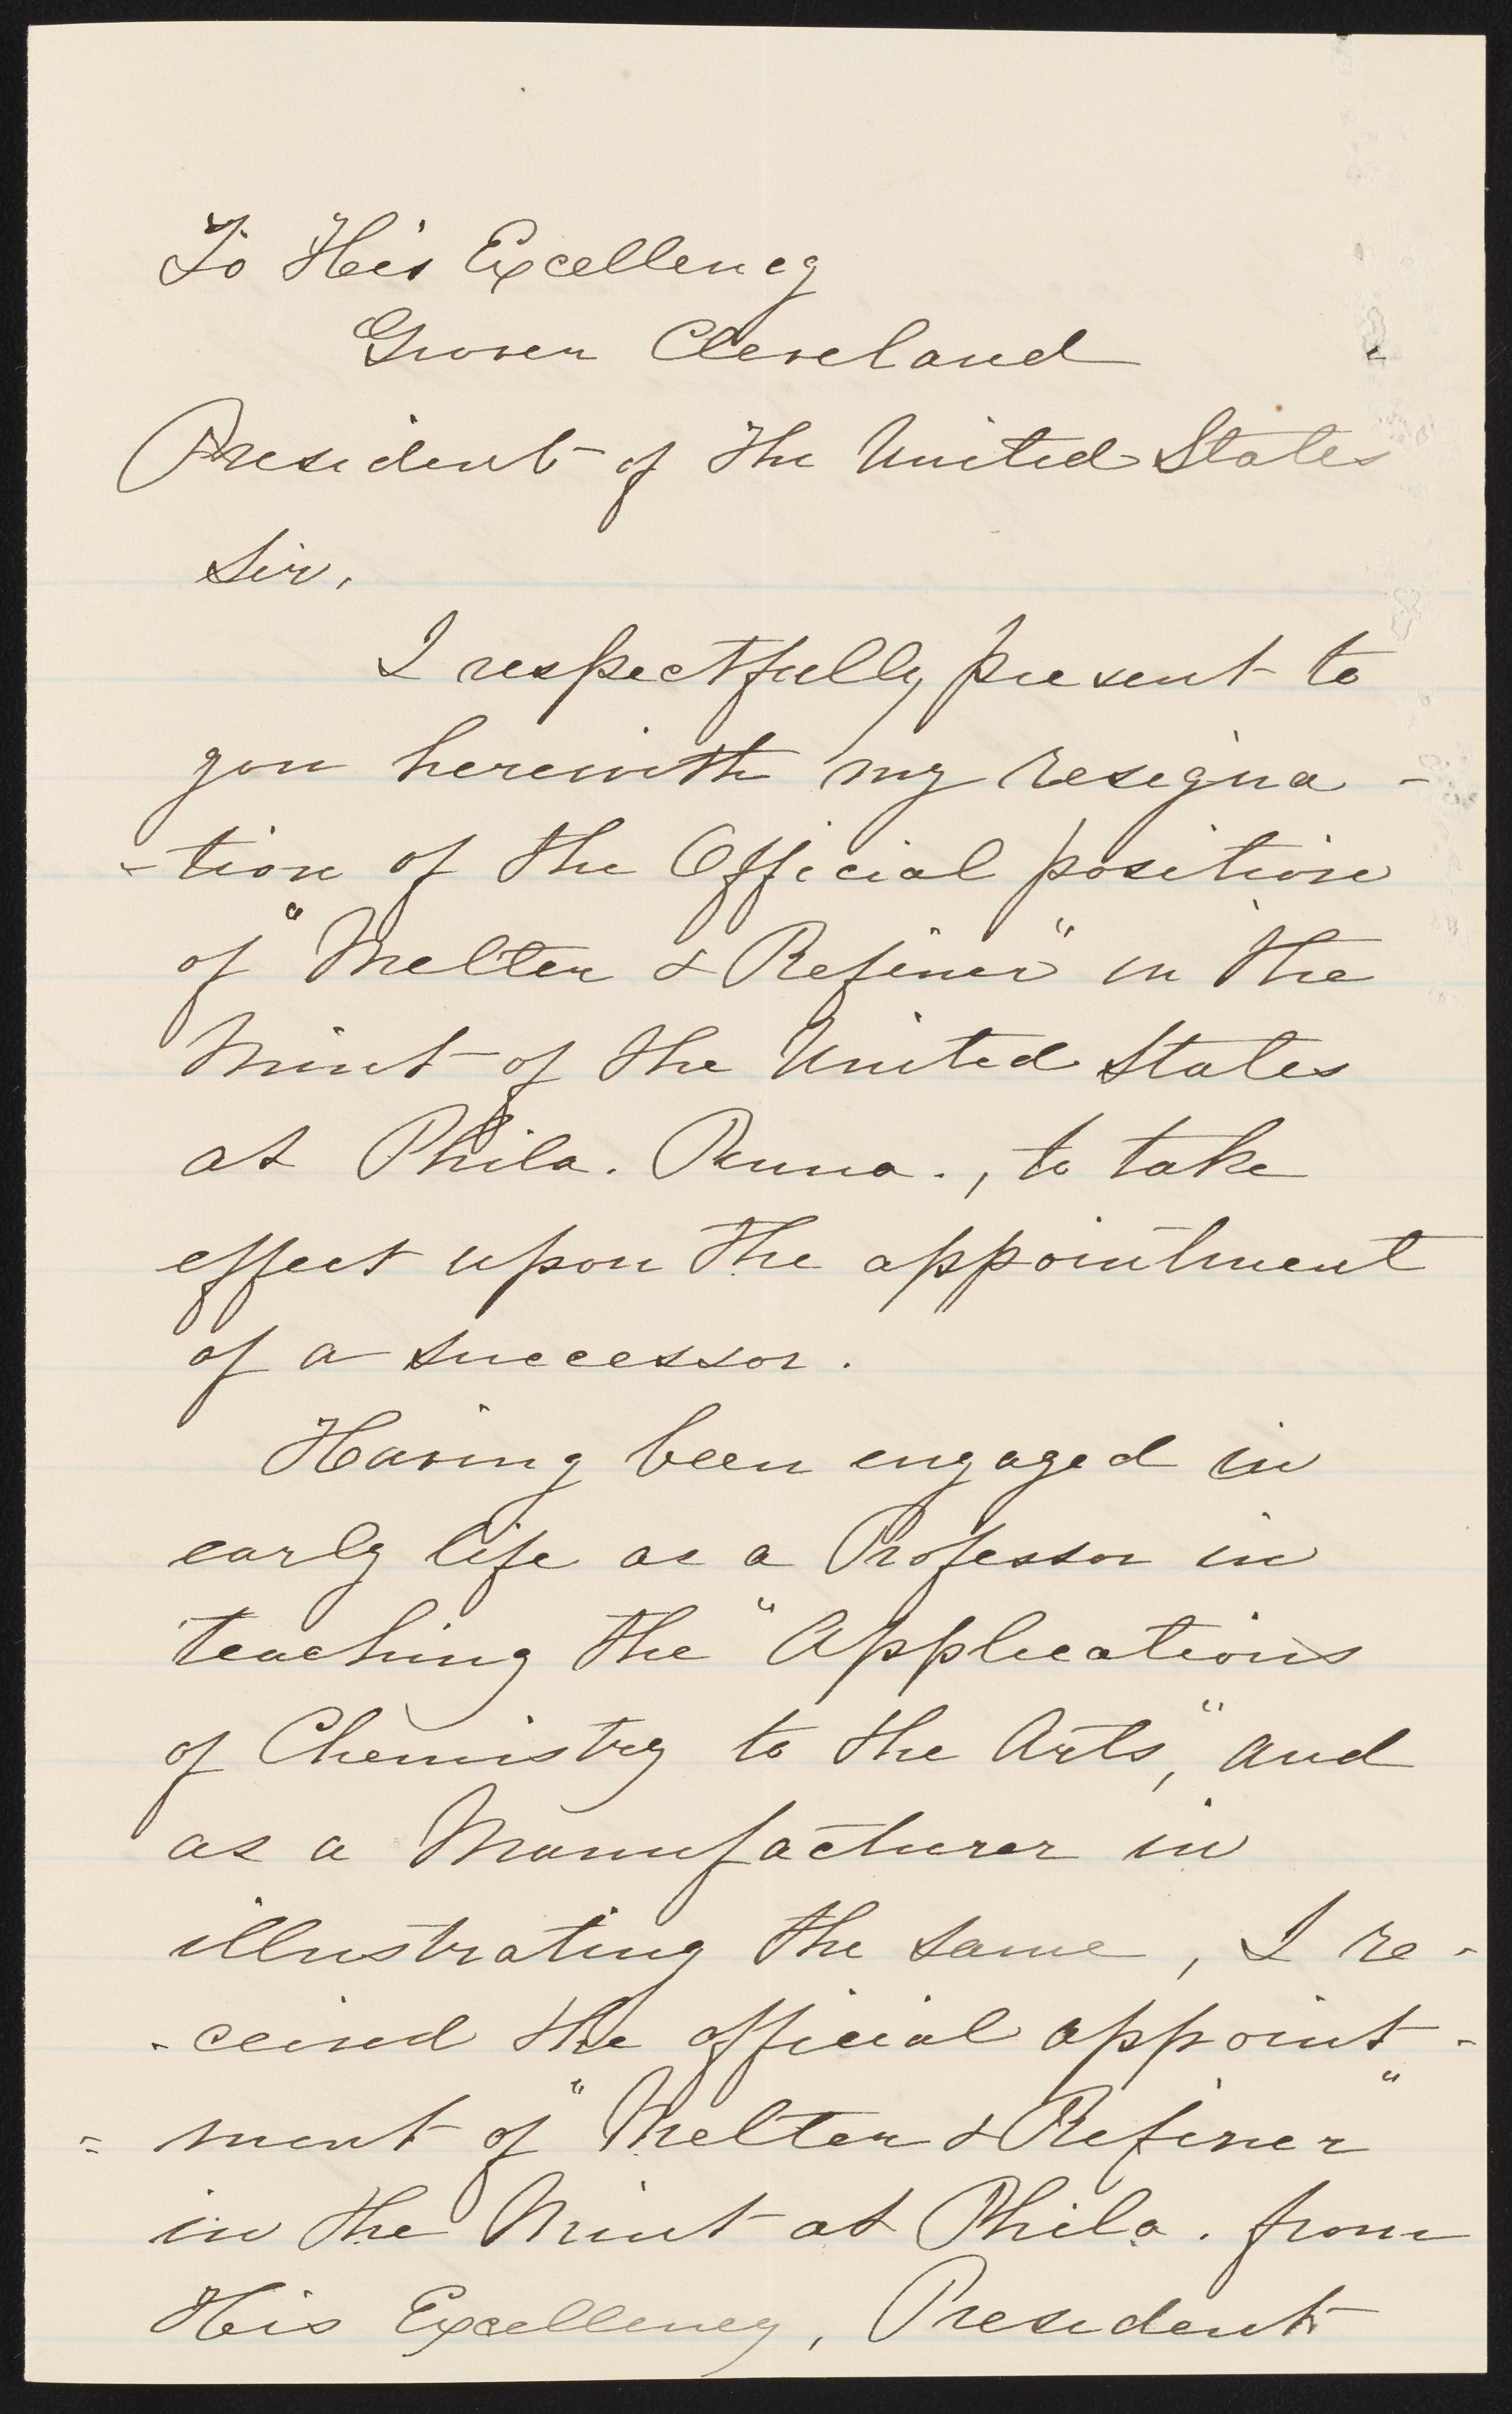 To His Excellency
Grover Cleveland
President of the United States
Sir,
I respectfully present to
you herewith my resigna-
-tion of the Official position
of "Melter & Refiner" in the
Mint of the United States
at Phila. Penna., to take
effect upon the appointment
of a successor.
Having been engaged in
early life as a Professor in
teaching the "Applications
of Chemistry to the Arts," and
as a Manufacturer in
illustrating the same, I re-
-ceived the official appoint-
-ment of "Melter & Refiner"
in the Mint at Phila. from
His Excellency, President